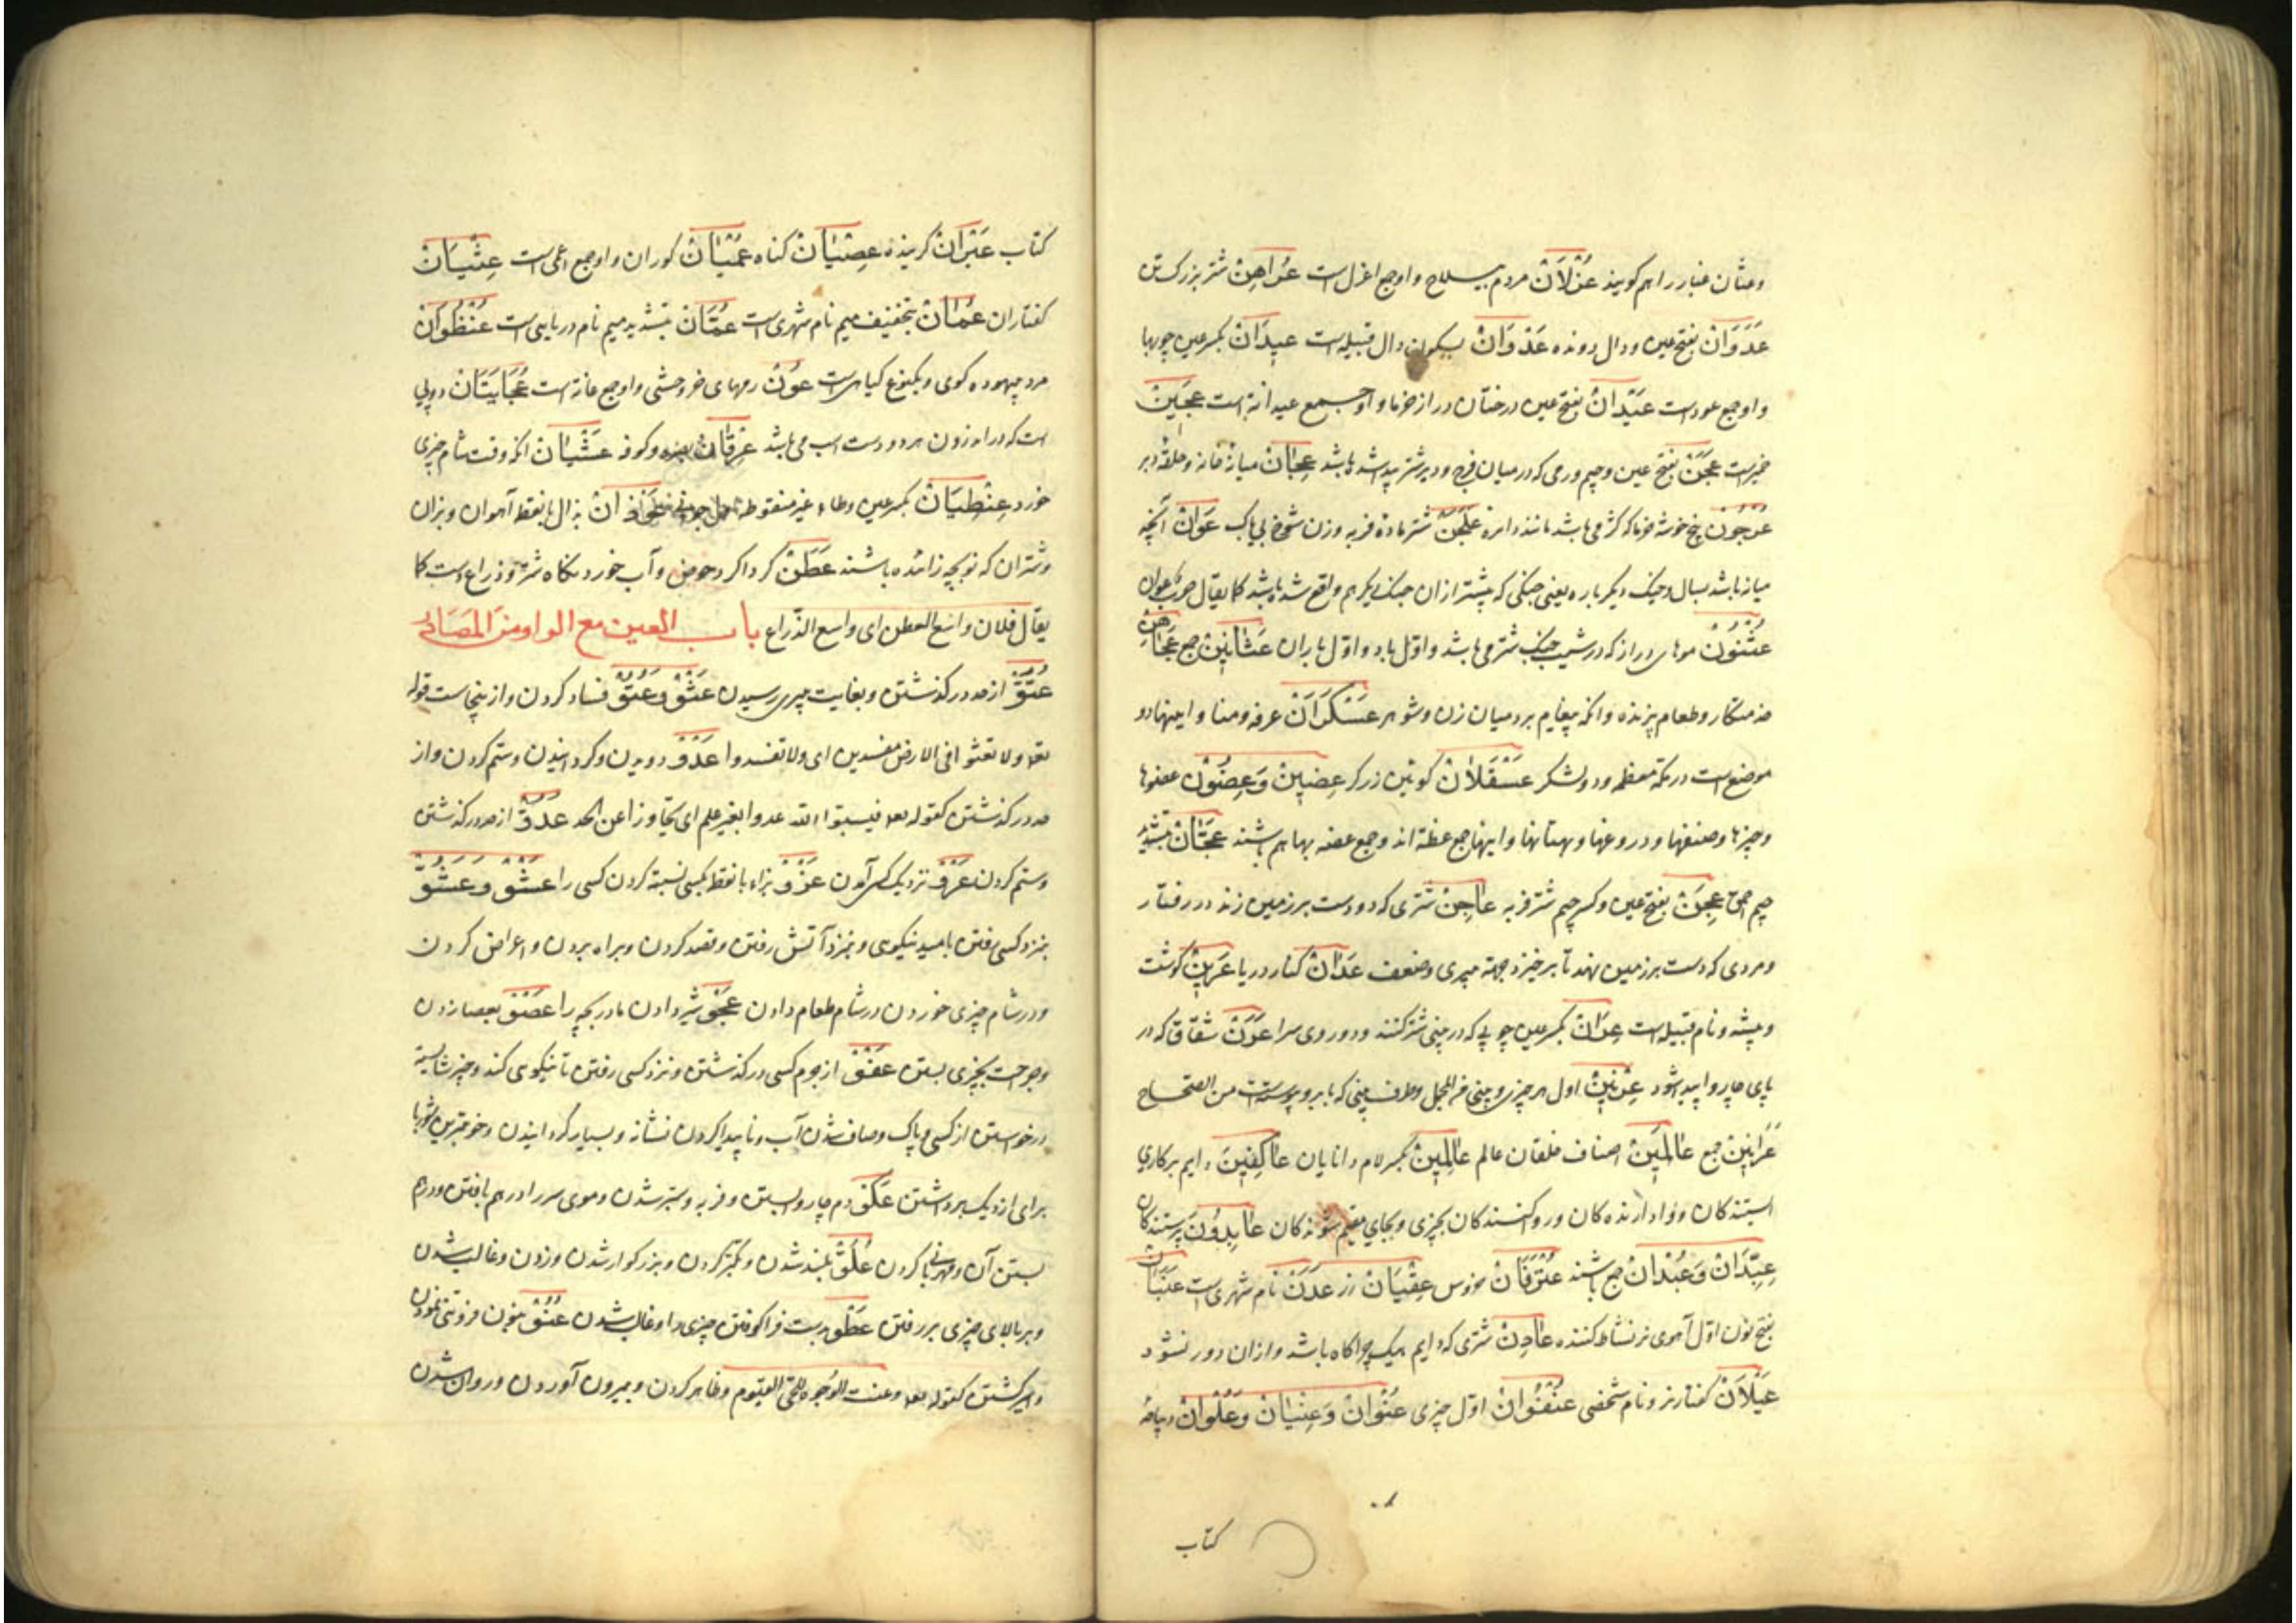 وعثان غبار را هم کویند عُزْلَانْ مردم بیسلاح واو جمع اعزل است عُرَاهِنْ شتر بزرک تن
عَدَوَانْ بفتح عین ودال دونده عَدْوَانْ بسکون دال قبیله است عِیدَانْ بکسر عین چوبها
واو جمع عود است عَیْدَانْ بفتح عین درختان دراز خرما واو جمع عیدانة است عَجِینْ
خمیر است عَجَنْ بفتح عین وجیم ورمی که در میان فرج ودبر شتر پیدا شده باشد عِجَانْ میانهٔ خانه وحلقهٔ دبر
عُرْجُونْ بیخ خوشه خرما که کژ می باشد مانند دایره عَلْجَنْ شتر ماده فربه وزن شوخ بی باک عَوَانْ آنچه
میانه باشد بسال وجنک دیکر باره یعنی جنکی که پیشتر از ان جنک دیکر هم واقع شده باشد کما یقال حرب عوان
عُثْنُونْ موهای دراز که در شیب جنک شتر می باشد واوّل باد واوّل باران عَثَانِینْ جمع عَجَاهِنْ
خدمتکار وطعام پزنده وانکه پیغام برد میان زن وشوهر عَسْکَرَانْ عرفه ومنا واینها دو
موضع است در مکهٔ معظمه ودو لشکر عَسْقَلَانْ کوئین زرکر عِضِینْ وَعِضُونْ عضوها
وچیزها وصنفها ودروغها وبهتانها واینها جمع عظة اند وجمع عضه بها هم باشند عَجَّانْ بتشدید
جیم احمق عَجِنْ بفتح عین وکسر جیم شتر فربه عَاجِنْ شتری که دو دست بر زمین زند در رفتار
ومردی که دست بر زمین نهد تا بر خیزد بجهة پیری وضعف عَدَانْ کنار دریا عَرِینْ کوشت
وبیشه ونام قبیله است عِرَانْ بکسر عین چوبی که در بینی شتر کنند ودوروی سرا عَرَنْ شقاقی که در
پای چاروا پیدا شود عِرْنِینْ اول هر چیزی وبینی فی المجمل وطرف بینی که بابرو پیوستست من الصحاح
عَرَانِینْ جمع عَالَمِینْ اصناف خلقان عالم عَالِمِینْ بکسر لام دانایان عَاکِفِینْ دایم برکاری
استندکان ووادارنده کان ورو کنندکان بچیزی وبجای مقیم شونده کان عَابِدُونْ پرستندکان
عِبِدَّانْ وَعُبْدَانْ جمع باشند عُتْرُفَانْ خروس عِقْیَانْ زر عَدَنْ نام شهری است عَنَبَانْ
بفتح نون اوّل آهوی نر نشاط کننده عَادِنْ شتری که دایم بیک چراکاه باشد واز ان دور نشود
عَیْلَانْ کفتار نر ونام شخصی عُنْفُوَانْ اوّل چیزی عُنْوَانْ وَعِنْیَانْ وَعُلْوَانْ دیباچهٔ
کتاب
کتاب عَبْرَانْ کرینده عِصْیَانْ کناه عُمْیَانْ کوران واو جمع اعمی است عِثْیَانْ
کفتاران عُمَانْ بتخفیف میم نام شهری است عُمَّانْ بتشدید میم نام دریایی است عُنْظُوَانْ
مرد بیهوده کوی ویکنوع کیاهی است عُوْنْ رمهای خر وحشی واو جمع عانة است عُجَایَتَانْ دو پی
است که در اندرون هر دو دست اسب می باشد عِرقَانْ بصره وکوفه عَشْیَانْ انکه وقت شام چیزی
خورد عِنْطِیَانْ بکسر عین وطاء غیر منقوطة اول جوانی عُوْذَانْ بذال با نقطه آهوان وبزان
وشتران که نو بچه زائیده باشند عَطَنْ کرداکرد حوض وآب خوردنکاه شتر وذراع است کما
یقال فلان واسع العطن ای واسع الذراع باب العین مع الواو من المصادر
عُتُوّْ از حد در کذشتن وبغایت پیری رسیدن عَثْوْ وَعُثُوّْ فساد کردن واز ینجاست قوله
تعه ولا تعثوا فی الارض مفسدین ای ولا تفسدوا عَدْوْ دویدن وکردانیدن وستم کردن واز
حد در کذشتن کقوله تعه فیسبوا الله عدوا بغیر علم ای تجاوزا عن الحد عُدُوّْ از حد در کذشتن
وستم کردن عَرْوْ نزدیک کس آمدن عَزْوْ بزاء با نقطه بکسی نسبة کردن کسی را عَشْوْ وَعُشُوّْ
بنزد کسی رفتن بامید نیکویی وبنزد آتش رفتن وقصد کردن وبراه بردن واعراض کردن
ودر شام چیزی خوردن ودر شام طعام دادن عَجْوْ شیر دادن مادر بچه را عَصْوْ بعصا زدن
وجراحت بچیزی بستن عَفْوْ از جرم کسی در کذشتن ونزد کسی رفتن تا نیکویی کند وچیز شایسته
درخواستن از کسی وپاک وصاف شدن آب وناپیدا کردن نشانه وبسیار کردانیدن وخوبترین شوربا
برای از دیک برداشتن عَکْوْ دم چاروا بستن وفربه وستبر شدن وموی سر را در هم بافتن ودرهم
بستن آن ومهربانی کردن عُلُوّْ بلند شدن وتکبر کردن وبزرکوار شدن وزدن وغالب شدن
وبر بالای چیزی بر رفتن عَطْوْ بدست فرا کرفتن چیزی را وغالب شدن عُنُوّْ بنون فروتنی نمودن
واسیر کشتن کقوله تعه وعنت الوجوه للحی القیّوم وظاهر کردن وبیرون آوردن وروان شدن